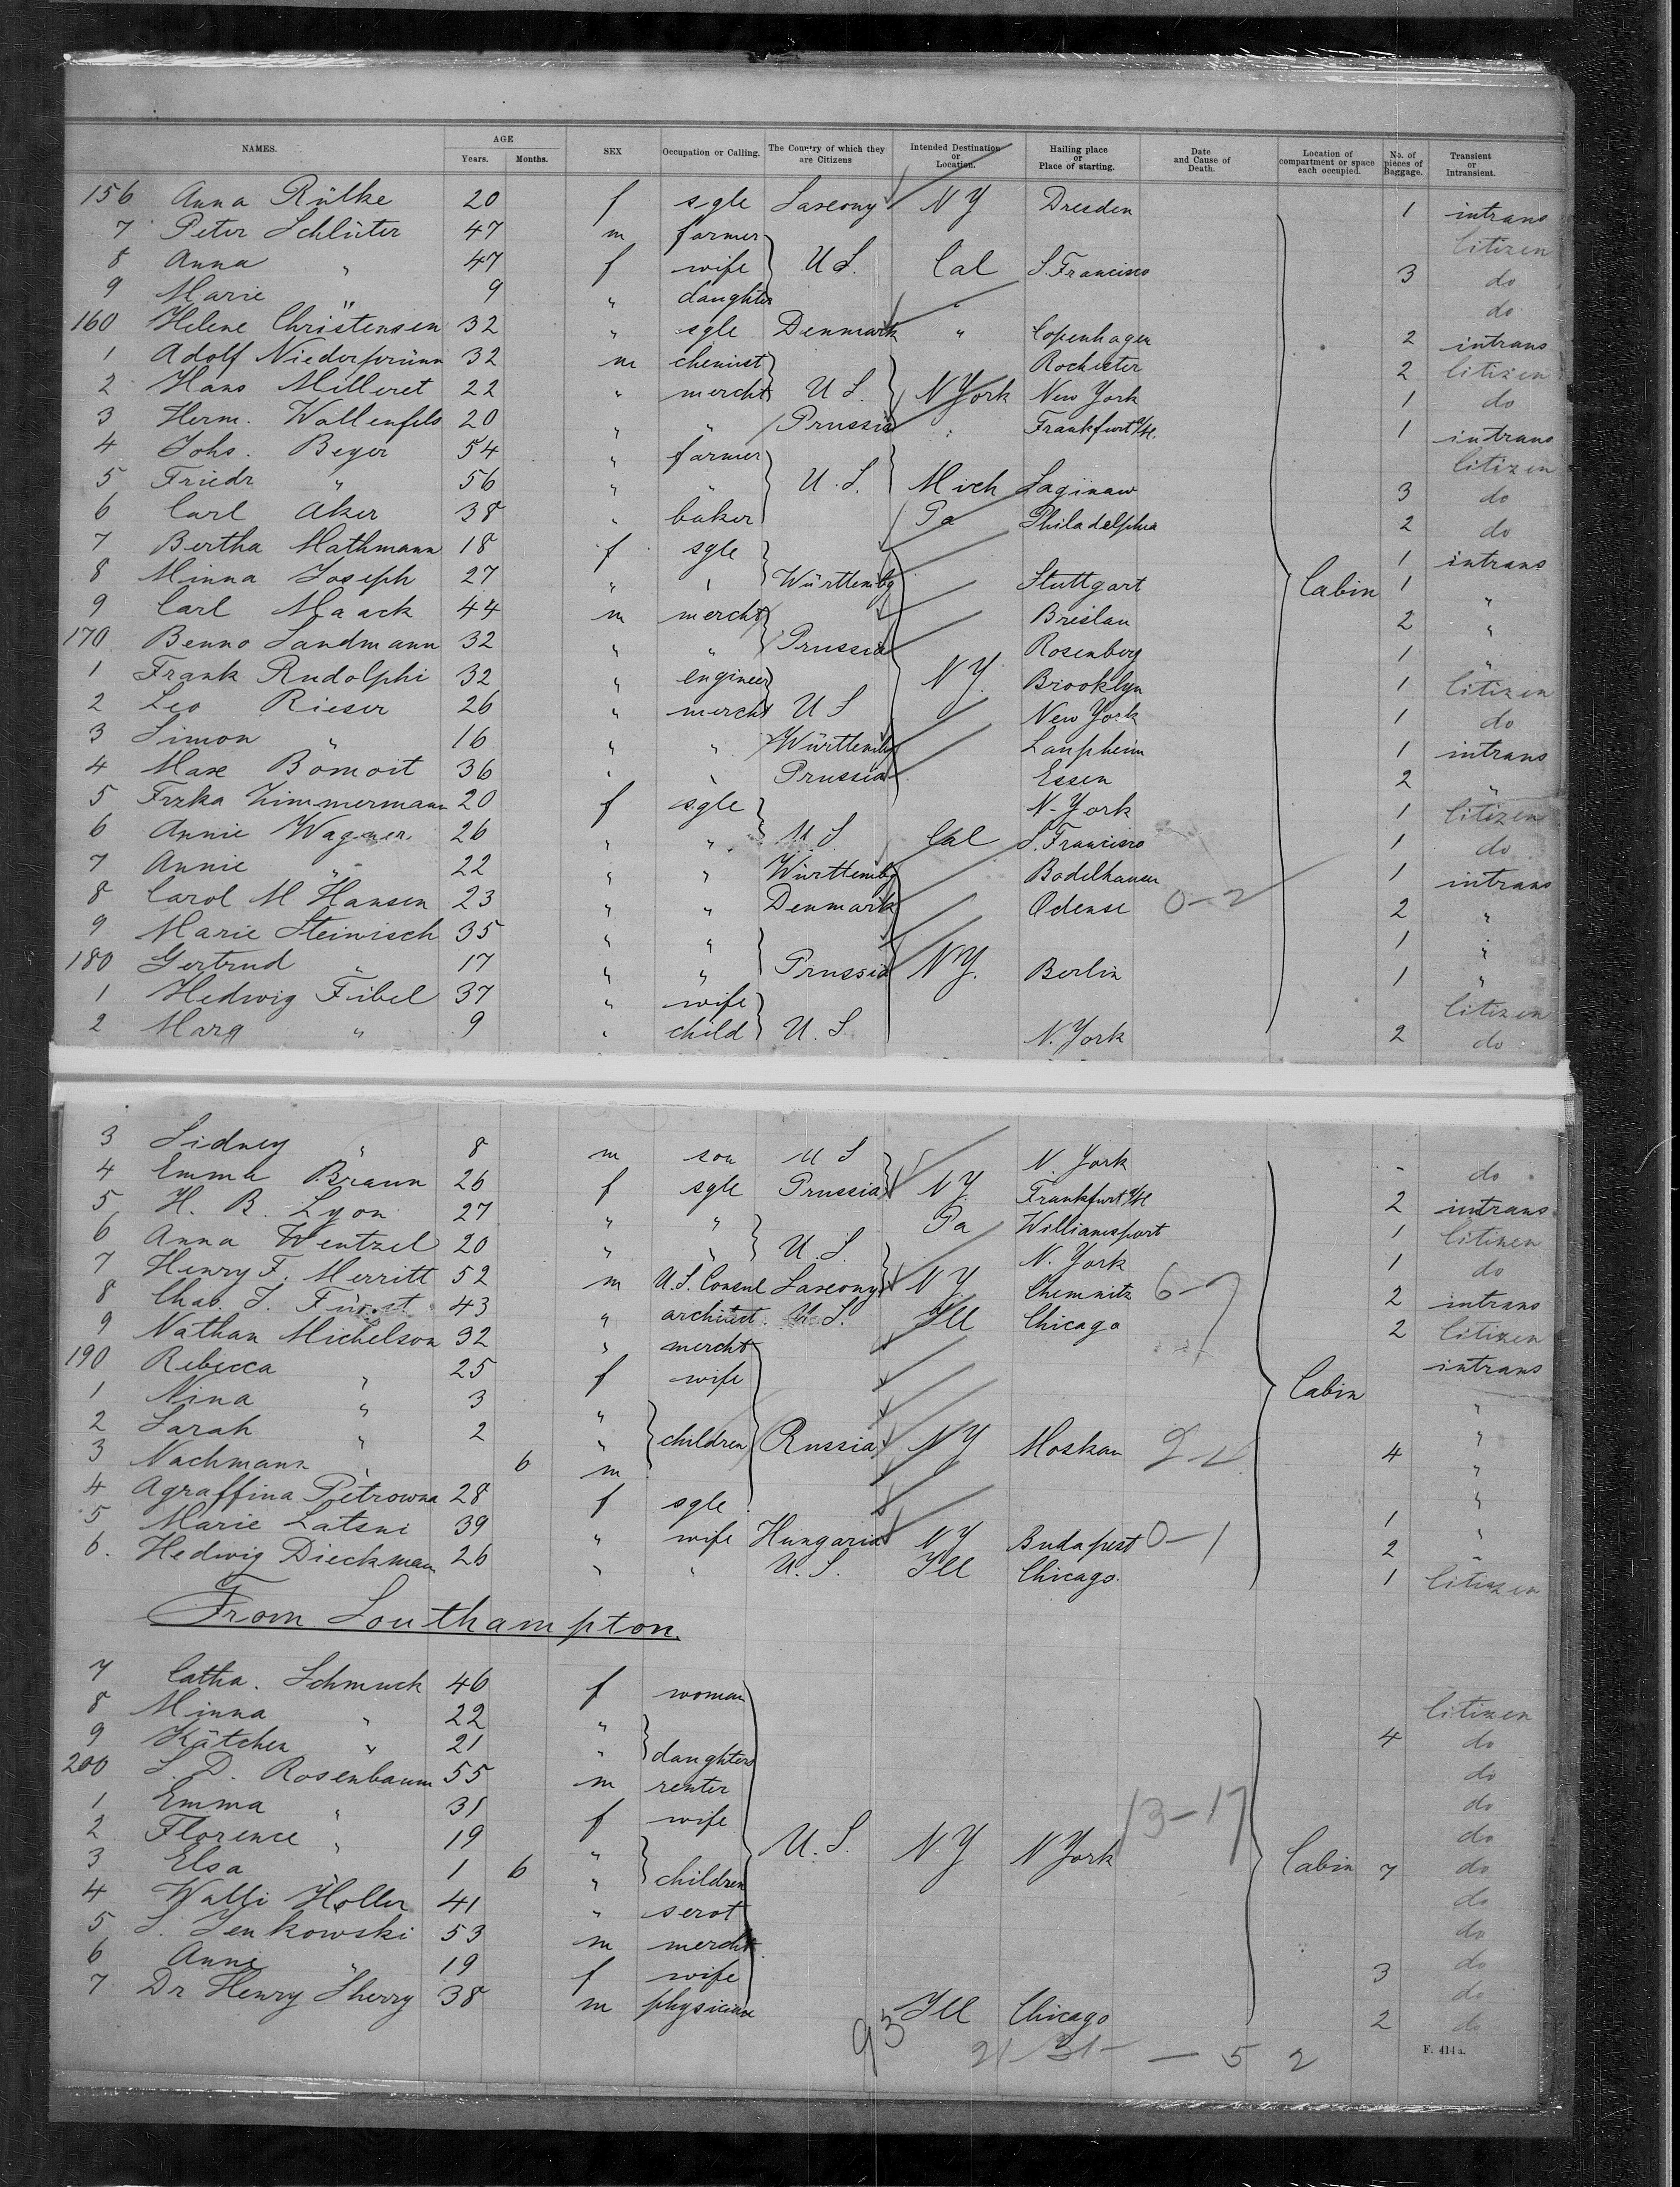 NAMES. AGE Years. Months. SEX Occupation or Calling. The Country of which they are Citizens Intended Destination or Location. Hailing place or Place of starting. Date and Cause of Death. Location of compartment or space each occupied. No. of pieces of Baggage. Transient or Intransient.
156 Anna Rülke 20 f sgle Saxony N Y Dresden 1 intrans
7 Peter Schlüter 47 m farmer Citizen
8 Anna " 47 f wife U S. Cal S. Francisco 3 do
9 Marie " 9 " daughter do
160 Helene Christensen 32 " sgle Denmark " Copenhagen 2 intrans
1 Adolf Niederprünn 32 m chemist Rochester 2 Citizen
2 Hans Milleret 22 " mercht U S. N York New York 1 do
3 Herm. Wallenfels 20 " " Prussia " Frankfurt a/M. 1 intrans
4 Johs. Beyer 54 " farmer Citizen
5 Friedr " 56 " " U. S. Mich Saginaw 3 do
6 Carl Aker 38 " baker Pa Philadelphia 2 do
7 Bertha Mathmann 18 f sgle 1 intrans
8 Minna Joseph 27 " " Württembg Stuttgart 1 "
9 Carl Maack 44 m mercht Breslau 2 "
170 Benno Sandmann 32 " " Prussia Rosenberg 1 "
1 Frank Rudolphi 32 " engineer N Y. Brooklyn 1 Citizen
2 Leo Rieser 26 " mercht U S New York 1 do
3 Simon " 16 " " Württembg Laupheim 1 intrans
4 Max Bomoit 36 " " Prussia Essen 2 "
5 Frzka Zimmermann 20 f sgle N. York 1 Citizen
6 Annie Wagner 26 " " U S. Cal S. Francisco 1 do
7 Annie " 22 " " Württembg Bodelhausen 1 intrans
8 Carol M Hansen 23 " " Denmark Odense 0-2 2 "
9 Marie Steinisch 35 " " 1 "
180 Gertrud " 17 " " Prussia N Y. Berlin 1 "
1 Hedwig Fibel 37 " wife Citizen
2 Marg " 9 " child U. S. N. York 2 do
Cabin
3 Sidney " 8 m son U S N. York - do
4 Emma Braun 26 f sgle Prussia N Y. Frankfurt a/M 2 intrans
5 H. B. Lyon 27 " " Pa Williamsport 1 Citizen
6 Anna Wentzel 20 " " U. S. N. York 1 do
7 Henry F. Merritt 52 m U. S. Consul Saxony N Y. Chemnitz 6-7 2 intrans
8 Chas. J. Fürst 43 " architect. U. S. Ill Chicago 2 Citizen
9 Nathan Michelson 32 " mercht intrans
190 Rebecca " 25 f wife
1 Nina " 3 " "
2 Sarah " 2 " children Russia N Y Moskau 4 "
3 Nachmann " 6 m "
4 Agraffina Petrowna 28 f sgle 1 "
5 Marie Latsni 39 " wife Hungaria N Y Budapest 0-1 2 "
6. Hedwig Dieckmann 26 " " U. S. Ill Chicago. 1 Citizen
Cabin
From Southampton.
7 Catha. Schmuck 46 f woman Citizen
8 Minna " 22 " 4 do
9 Kätchen " 21 " daughters do
200 S. D. Rosenbaum 55 m renter do
1 Emma " 31 f wife do
2 Florence " 19 " U. S. N Y N York 13-17 Cabin 7 do
3 Elsa " 1 6 " children do
4 Walli Holler 41 " servt do
5 S. Jenkowski 53 m mercht do
6 Anne " 19 f wife 3 do
7 Dr Henry Sherry 38 m physician Ill Chicago 2 do
93 21 31 - 5 2
F. 414a.